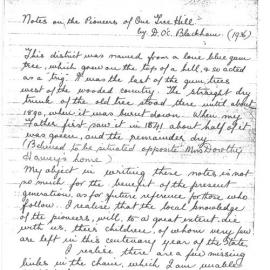 Notes on the Pioneers of One Tree Hill
by D. A. Blackham (1936)
This district was named from a lone blue gum
tree, which grew on the top of a hill, & so acted
as a 'trig'. It was the last of the gum trees
west of the wooded country. The straight dry
trunk of the old tree stood there until about
1890, when it was burnt down. When my
Father first saw it in 1841, about half of it
was green, and the remainder dry
(Believed to be situated opposite Mrs Dorothy
Harvey's home)
My object in writing these notes is not
so much for the benefit of the present
generation, as for future reference for those who
follow. I realise that the local knowledge
of the pioneers, will, to a great extent die
with us, their children, of whom very few
are left in this centenary year of the State.
I realise there are a few missing
links in the chain, which I am unable